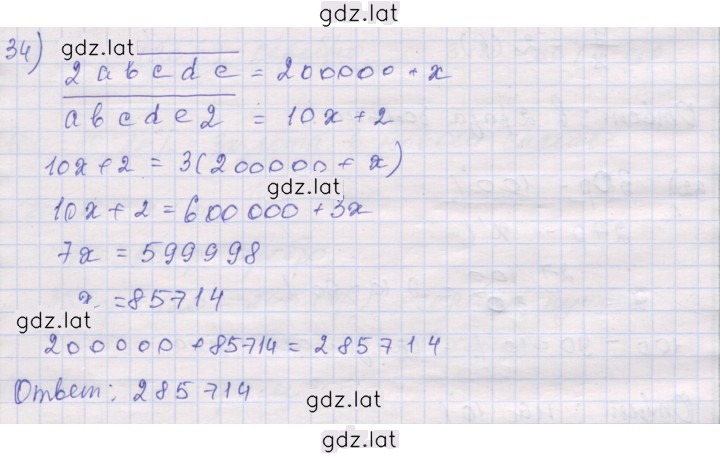 gdz.lat
34) gdz.lat
2abcde = 200000 + x
abcde2 = 10x + 2
10x + 2 = 3(200000 + x)
gdz.lat
10x + 2 = 600000 + 3x
7x = 599998
x = 85714
gdz.lat
200000 + 85714 = 285714
Ответ: 285714
gdz.lat
gdz.lat